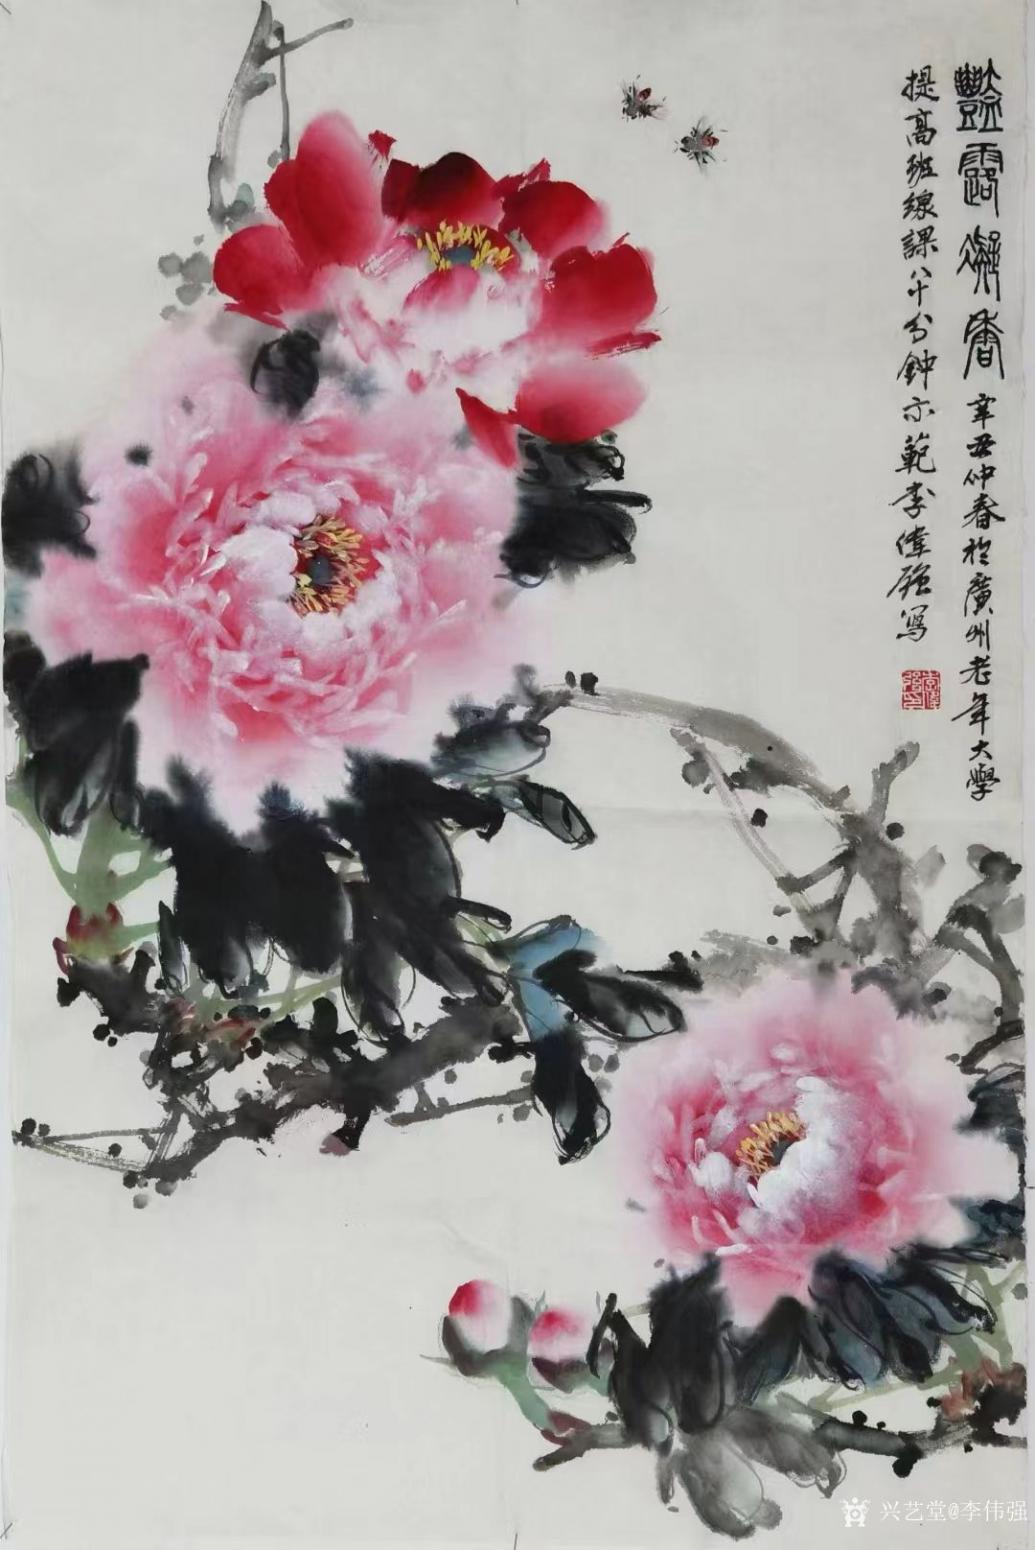 豔露凝香 辛丑仲春於廣州老年大學
提高班線課八十分鐘示範李偉強写
李偉強印
兴艺堂@李伟强